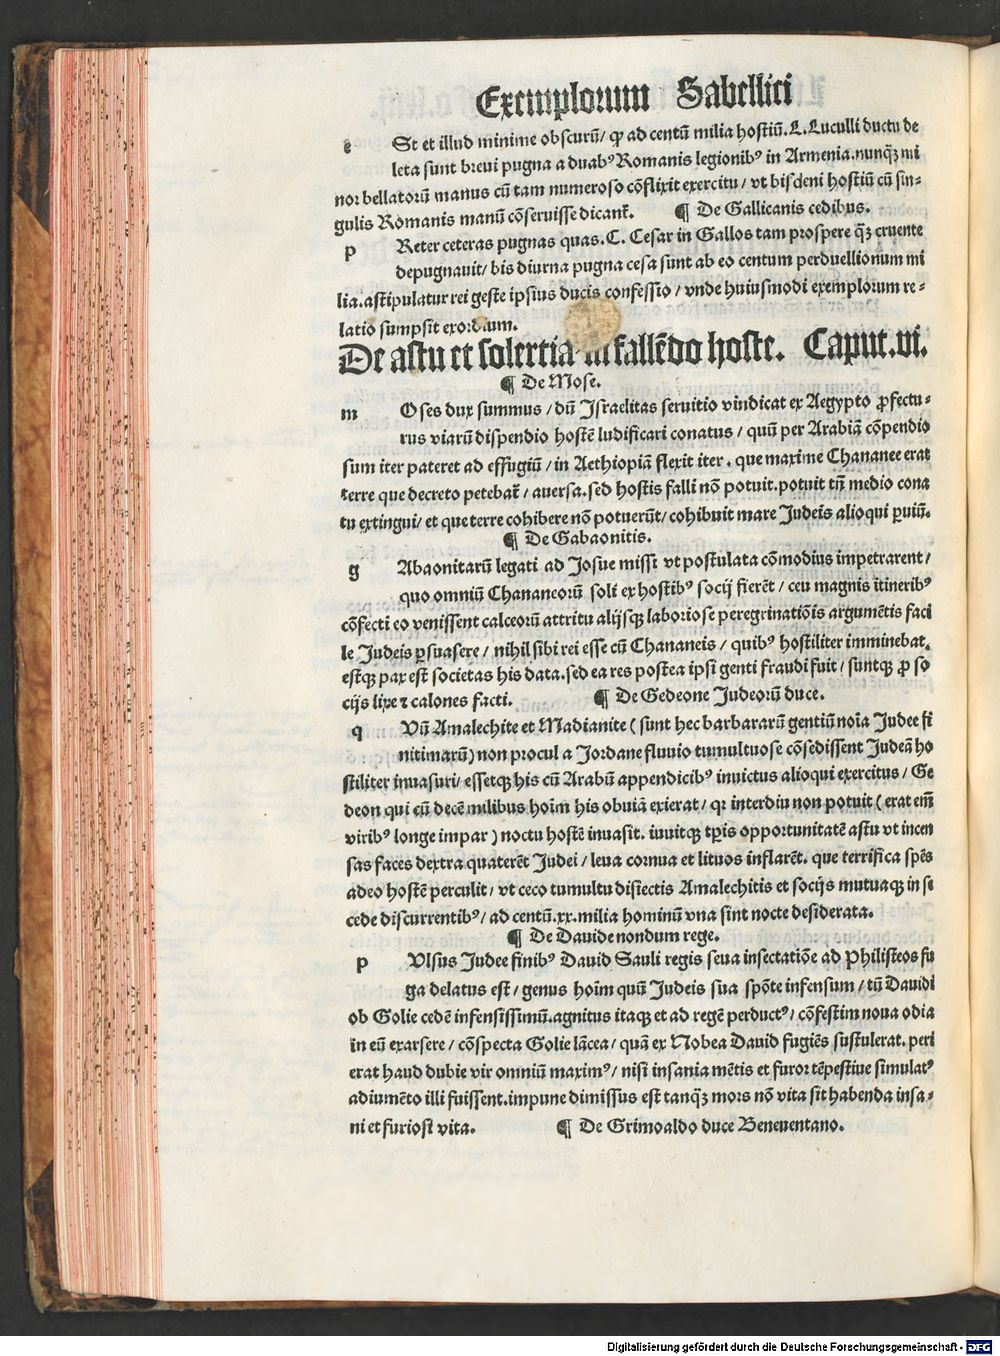 Exemplorum Sabellici
e St et illud minime obscurū/ ꝙ ad centū milia hostiū. L. Luculli ductu de
leta sunt brevi pugna a duabꝰ Romanis legionibꝰ in Armenia. nunqꝫ mi
nor bellatorū manus cū tam numeroso cōflixit exercitu/ vt bis deni hostiū cū sin⸗
gulis Romanis manū cōseruisse dicant̄. ¶ De Gallicanis cedibus.
p Reter ceteras pugnas quas. C. Cesar in Gallos tam prospere qꝫ cruente
depugnauit/ bis diurna pugna cesa sunt ab eo centum perduellionum mi
lia. astipulatur rei geste ipsius ducis confessio/ vnde huiusmodi exemplorum re⸗
latio sumpsit exordium.
De astu et solertia in fallēdo hoste. Caput. vi.
¶ De Mose.
m Oses dux summus/ dū Israelitas seruitio vindicat ex Aegypto ꝓfectu⸗
rus viarū dispendio hostē ludificari conatus/ quū per Arabiā cōpendio
sum iter pateret ad effugiū/ in Aethiopiā flexit iter. que maxime Chananee erat
terre que decreto petebat̄/ auersa. sed hostis falli nō potuit. potuit tn̄ medio cona
tu extingui/ et que terre cohibere nō potuerūt/ cohibuit mare Iudeis alioqui ꝑuiū.
¶ De Gabaonitis.
g Abaonitarū legati ad Iosue missi vt postulata cōmodius impetrarent/
quo omniū Chananeorū soli ex hostibꝰ socij fierēt/ ceu magnis itineribꝰ
cōfecti eo venissent calceorū attritu alijsqꝫ laboriose peregrinatiōis argumētis faci
le Iudeis ꝑsuasere/ nihil sibi rei esse cū Chananeis/ quibꝰ hostiliter imminebat.
estqꝫ pax est societas his data. sed ea res postea ipsi genti fraudi fuit/ suntqꝫ ꝓ so
cijs lixe ⁊ calones facti. ¶ De Gedeone Iudeorū duce.
q Vū Amalechite et Madianite (sunt hec barbararū gentiū noīa Iudee fi
nitimarū) non procul a Iordane fluvio tumultuose cōsedissent Iudeā ho
stiliter inuasuri/ essetqꝫ his cū Arabū appendicibꝰ inuictus alioqui exercitus/ Ge
deon qui cū decē milibus hoīm his obuiā exierat/ qꝛ interdiu non potuit (erat em̄
viribꝰ longe impar) noctu hostē inuasit. iuuitqꝫ tꝑis opportunitatē astu vt incen
sas faces dextra quaterēt Iudei/ leua cornua et lituos inflarēt. que terrifica spēs
adeo hostē perculit/ vt ceco tumultu disiectis Amalechitis et socijs mutuaqꝫ in se
cede discurrentibꝰ/ ad centū. xx. milia hominū vna sint nocte desiderata.
¶ De Dauide nondum rege.
p Vlsus Iudee finibꝰ Dauid Sauli regis seua insectatiōe ad Philisteos fu
ga delatus est/ genus hoīm quū Iudeis sua spōte infensum/ tū Dauidi
ob Golie cedē infensissimū. agnitus itaqꝫ et ad regē perductꝰ/ cōfestim noua odia
in eū exarsere/ cōspecta Golie lācea/ quā ex Nobea Dauid fugiēs sustulerat. peri
erat haud dubie vir omniū maximꝰ/ nisi insania mētis et furor tēpestiue simulatꝰ
adiumēto illi fuissent. impune dimissus est tanqꝫ mors nō vita sit habenda insa⸗
ni et furiosi vita. ¶ De Grimoaldo duce Beneuentano.
Digitalisierung gefördert durch die Deutsche Forschungsgemeinschaft - DFG